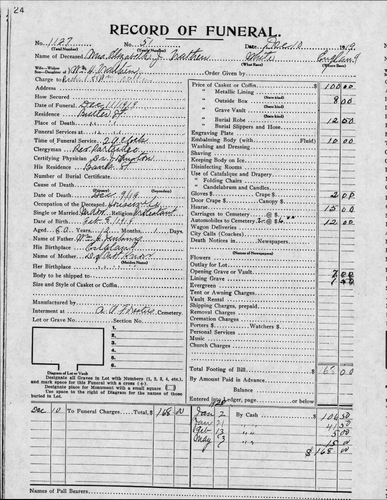 24
RECORD OF FUNERAL.
No. 1127 No. 51 Date Dec 10 1919
Name of Deceased Mrs Elizabeth J. White England
(What Race) (Where Born)
Wife - Widow
Son - Daughter of Wm H. Order Given by
Charge to
Address
How Secured
Date of Funeral Dec 11 1919
Residence Butler St
Place of Death
Funeral Services at
Time of Funeral Service 2 o'clock
Clergyman Rev. Partridge
Certifying Physician Dr.
His Residence Banks St
Number of Burial Certificate
Cause of Death
Date of Death Dec 9/19
Occupation of the Deceased Housewife
Single or Married Religion Protestant
Date of Birth
Aged Years Months Days
Name of Father Wm
His Birthplace England
Name of Mother Don't Know
(Maiden Name)
Her Birthplace
Body to be shipped to
Size and Style of Casket or Coffin
Manufactured by
Interment at Cemetery
Lot or Grave No. Section No.
1. 2. 3. 4. 5. 6.
Diagram of Lot or Vault
Designate all Graves in Lot with Numbers (1, 2, 3, 4, etc.),
and mark space for this Funeral with a cross (+).
Designate place for Monument with a small square
Use space in the right of Diagram for the names of those
buried in Lot.
Price of Casket or Coffin $ 100 00
" Metallic Lining
(State kind)
" Outside Box 8 00
(State kind)
" Grave Vault
(State kind)
" Burial Robe 12 00
(State kind)
" Burial Slippers and Hose
Engraving Plate
Embalming Body (with Fluid) 10 00
Washing and Dressing
Shaving
Keeping Body on Ice
Disinfecting Rooms
Use of Catafalque and Drapery
" Folding Chairs
" Candelabrum and Candles
Gloves $ Crape $ 2 00
Door Crape (Candy)
Hearse 15 00
Carriages to Cemetery @ $
Automobiles to Cemetery @ $ 12 00
Wagon Deliveries
City Calls (Coaches)
Death Notices in Newspapers
(Names of Newspapers)
Flowers
Outlay for Lot
Opening Grave or Vault 7 00
Lining Grave
Evergreen
Tent or Awning Charges
Vault Rental
Shipping Charges, prepaid
Removal Charges
Cremation Charges
Porters $ Watchers $
Personal Services
Music
Church Charges
Total Footing of Bill $
By Amount Paid in Advance
Balance
Entered into Ledger, page or below
Dec 10 To Funeral Charges, Total, $ 168 00
Jan 2 By Cash $ 106 50
Jan 21 " " 41 50
Feb 13 " " 5 00
May 3 " " 15 00
$ 168 00
Names of Pall Bearers